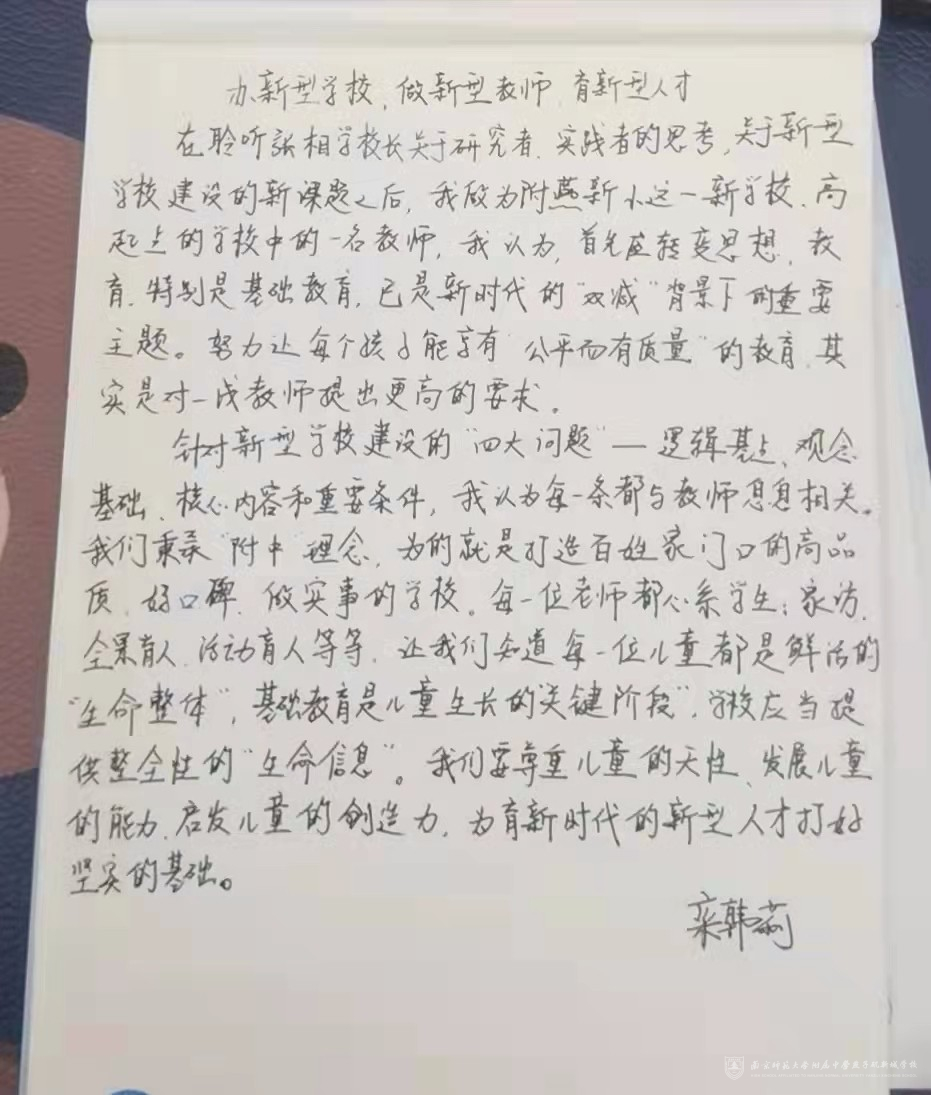 办新型学校、做新型教师、育新型人才
在聆听张相学校长关于研究者、实践者的思考,关于新型
学校建设的新课题之后,我做为附燕新小这一新学校、高
起点的学校中的一名教师,我认为,首先应转变思想,教
育,特别是基础教育,已是新时代的“双减”背景下的重要
主题。努力让每个孩子能享有“公平而有质量”的教育,其
实是对一线教师提出更高的要求。
针对新型学校建设的“四大问题”—逻辑基点、观念
基础、核心内容和重要条件,我认为每一条都与教师息息相关。
我们秉承“附中”理念,为的就是打造百姓家门口的高品
质、好口碑、做实事的学校。每一位老师都心系学生;家访、
全景育人、活动育人等等,让我们知道每一位儿童都是鲜活的
“生命整体”,基础教育是儿童生长的关键阶段”,学校应当提
供整全性的“生命信息”。我们要尊重儿童的天性、发展儿童
的能力、启发儿童的创造力,为育新时代的新型人才打好
坚实的基础。
栾韩莉
南京师范大学附属中学燕子矶新城学校